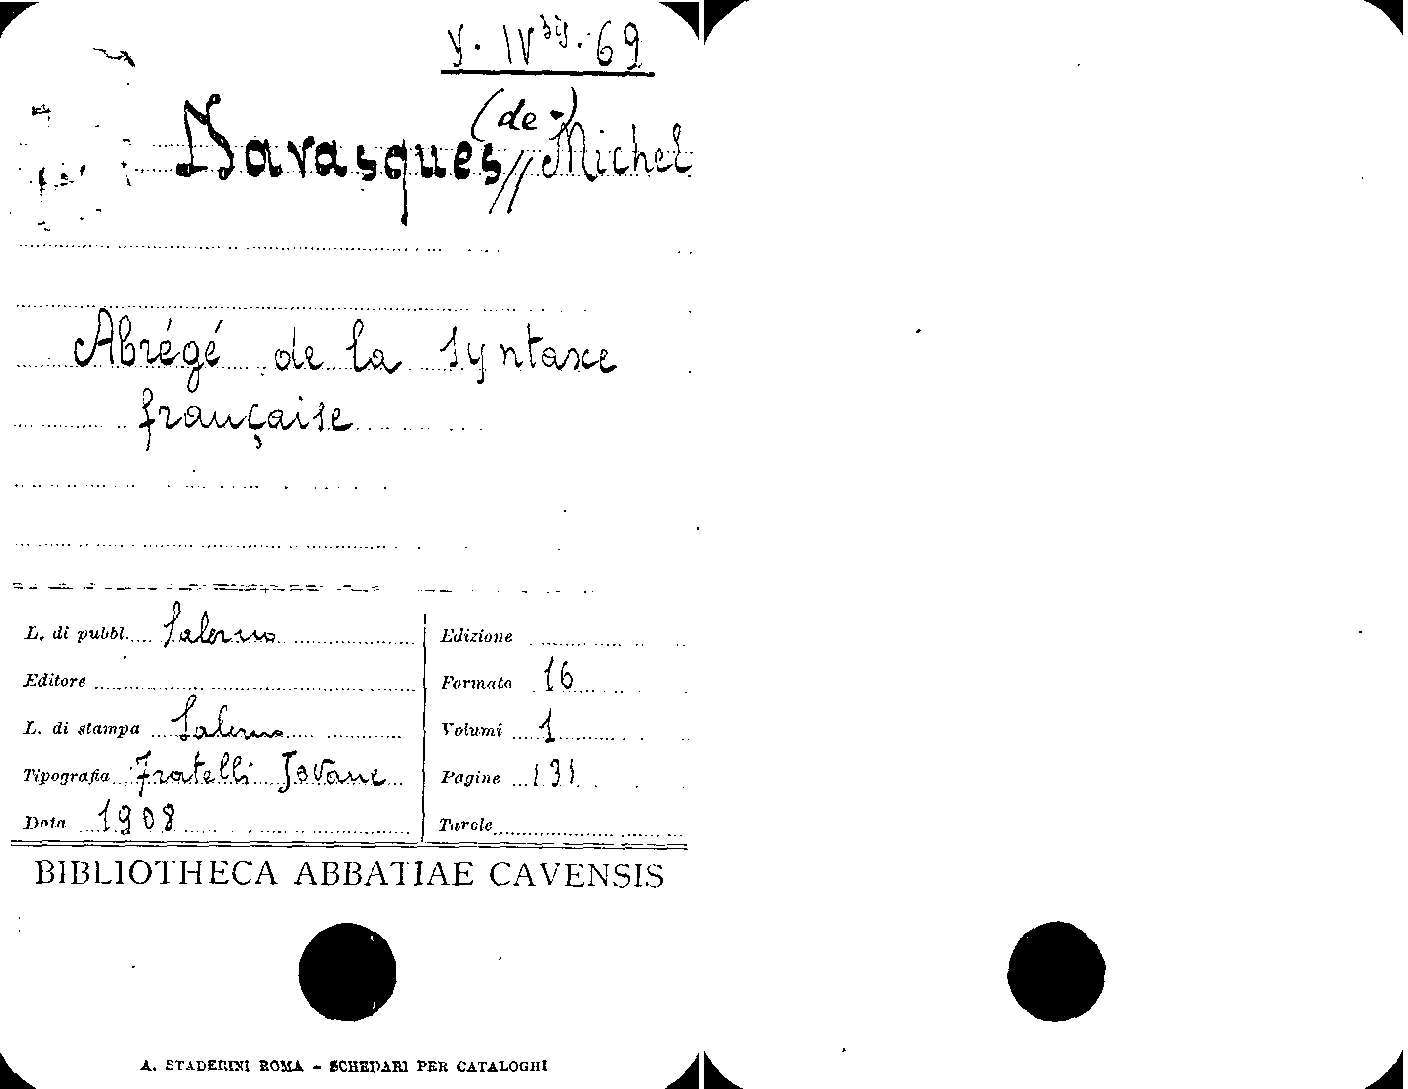 Y. IV bis. 69
Navasques // (de -) Michel
Abrégé de la syntaxe
française
L. di pubbl. Salerno
Editore
L. di stampa Salerno
Tipografia Fratelli Jovane
Data 1908
Edizione
Formato 16
Volumi 1
Pagine 131
Tavole
BIBLIOTHECA ABBATIAE CAVENSIS
A. STADERINI ROMA - SCHEDARI PER CATALOGHI